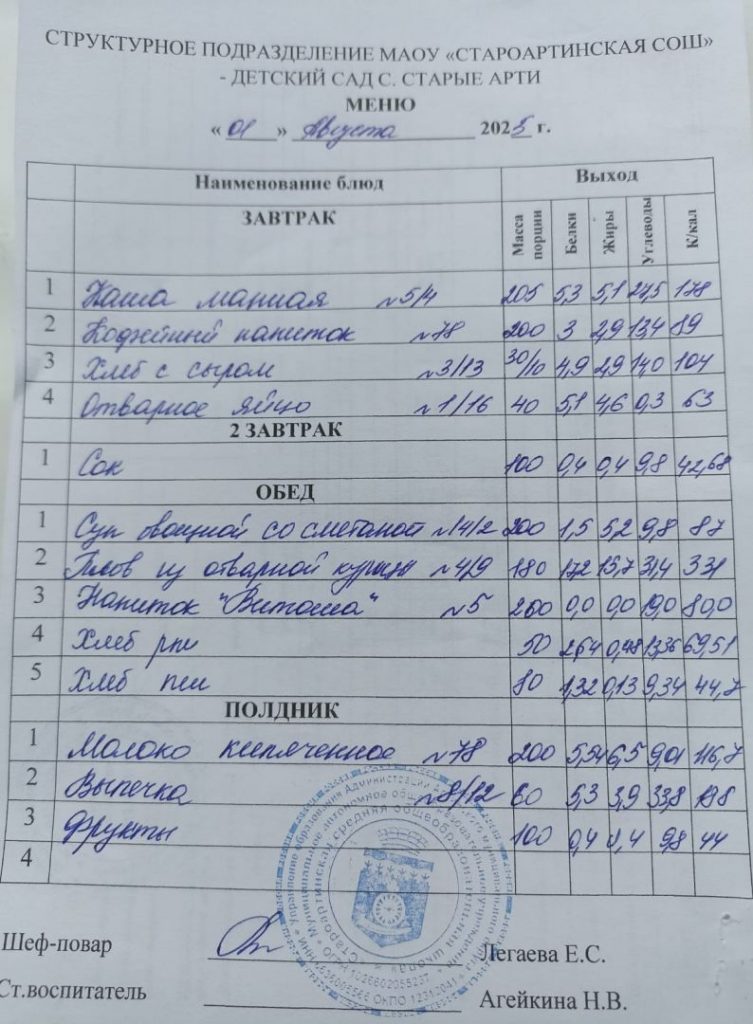 СТРУКТУРНОЕ ПОДРАЗДЕЛЕНИЕ МАОУ «СТАРОАРТИНСКАЯ СОШ»
- ДЕТСКИЙ САД С. СТАРЫЕ АРТИ
МЕНЮ
« 01 » Августа 2025 г.
Наименование блюд Выход
ЗАВТРАК Масса порции Белки Жиры Углеводы К/кал
1 Каша манная №5/4 205 5,3 5,1 24,5 178
2 Кофейный напиток №78 200 3 2,9 13,4 89
3 Хлеб с сыром №3/13 30/10 4,9 2,9 14,0 104
4 Отварное яйцо №1/16 40 5,1 4,6 0,3 63
2 ЗАВТРАК
1 Сок 100 0,4 0,4 9,8 42,68
ОБЕД
1 Суп овощной со сметаной №14/2 200 1,5 5,2 9,8 87
2 Плов из отварной курицы №4/9 180 17,2 15,7 31,4 331
3 Напиток "Витоша" №5 200 0,0 0,0 19,0 80,0
4 Хлеб рж 50 2,64 0,48 13,36 69,51
5 Хлеб пш 80 1,32 0,13 9,34 44,7
ПОЛДНИК
1 Молоко кипяченное №78 200 5,54 6,5 9,01 116,7
2 Выпечка №8/12 60 5,3 3,9 33,8 198
3 Фрукты 100 0,4 0,4 9,8 44
4
Шеф-повар Легаева Е.С.
Ст.воспитатель Агейкина Н.В.